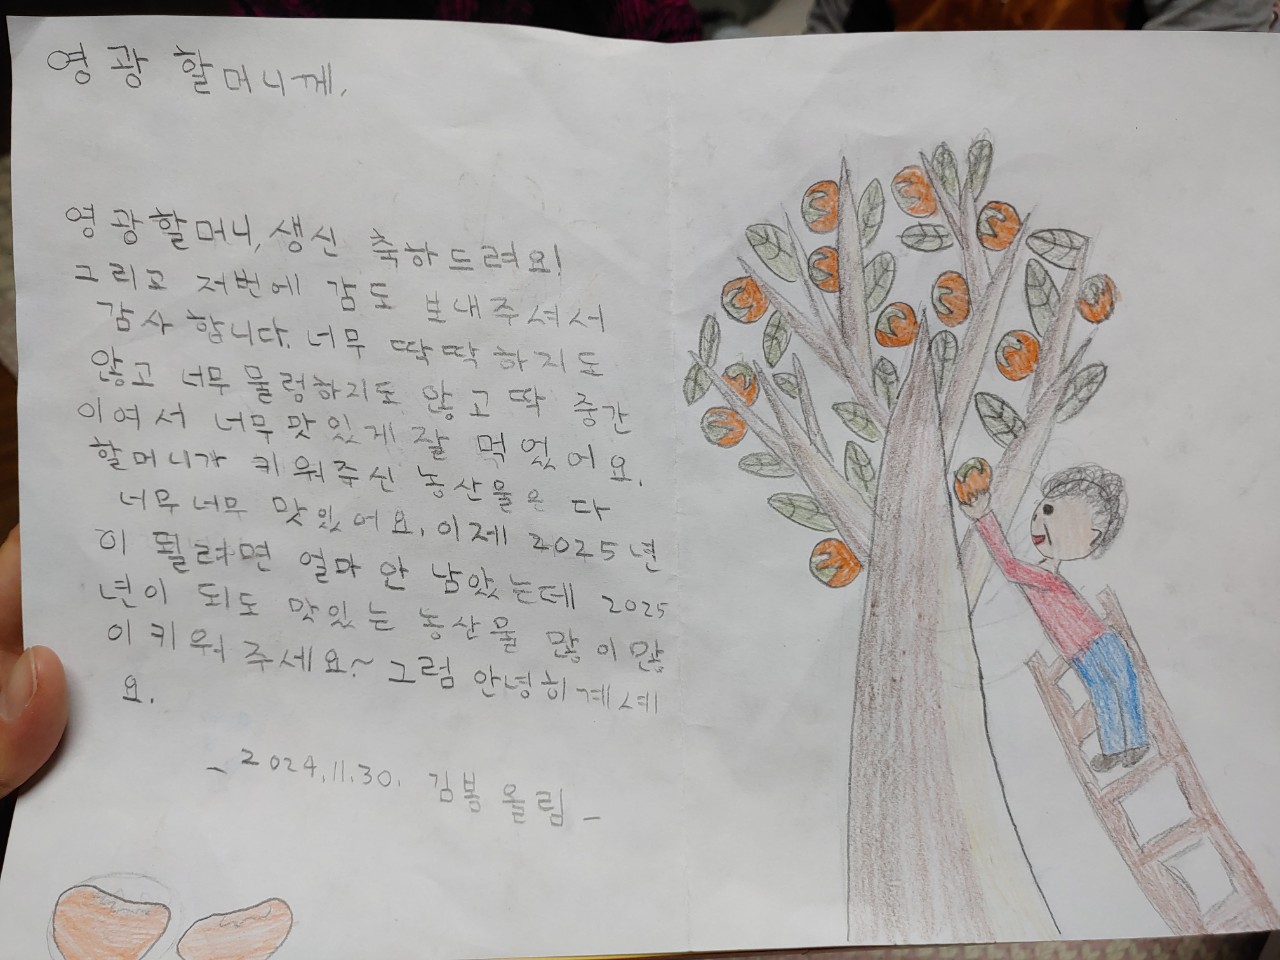 영광 할머니께,
영광할머니, 생신 축하드려요!
그리고 저번에 감도 보내주셔서
감사합니다. 너무 딱딱하지도
않고 너무 물렁하지도 않고 딱 중간
이여서 너무 맛있게 잘 먹었어요.
할머니가 키워주신 농산물은 다
너무너무 맛있어요. 이제 2025년
이 될려면 얼마 안 남았는데 2025
년이 되도 맛있는 농산물 많이많
이 키워주세요~ 그럼 안녕히계세
요.
- 2024.11.30. 김봄 올림 -